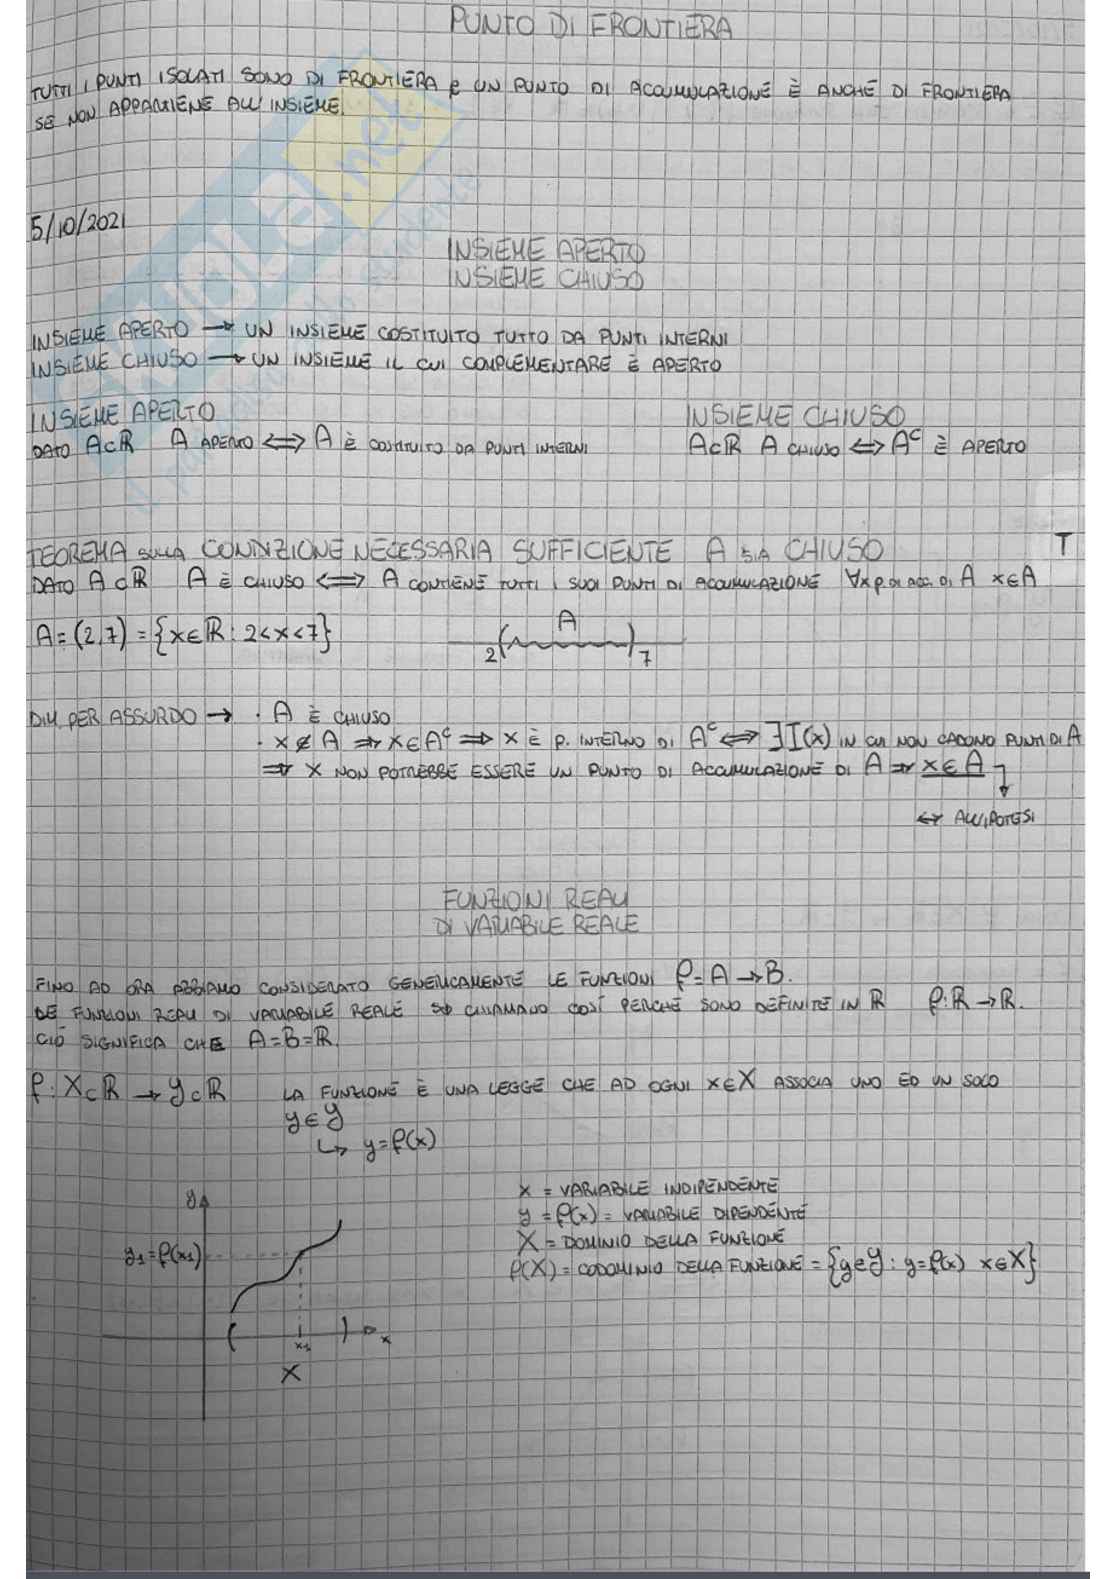 PUNTO DI FRONTIERA
TUTTI I PUNTI ISOLATI SONO DI FRONTIERA E UN PUNTO DI ACCUMULAZIONE È ANCHE DI FRONTIERA
SE NON APPARTIENE ALL'INSIEME.
5/10/2021
INSIEME APERTO
INSIEME CHIUSO
INSIEME APERTO → UN INSIEME COSTITUITO TUTTO DA PUNTI INTERNI
INSIEME CHIUSO → UN INSIEME IL CUI COMPLEMENTARE È APERTO
INSIEME APERTO INSIEME CHIUSO
DATO A⊂ℝ A APERTO ⟺ A È COSTITUITO DA PUNTI INTERNI A⊂ℝ A CHIUSO ⟺ Aᶜ È APERTO
TEOREMA SULLA CONDIZIONE NECESSARIA SUFFICIENTE A SIA CHIUSO T
DATO A⊂ℝ A È CHIUSO ⟺ A CONTIENE TUTTI I SUOI PUNTI DI ACCUMULAZIONE ∀x p. di acc. di A x∈A
A=(2,7)={x∈ℝ: 2<x<7} A
2 7
DIM. PER ASSURDO → · A È CHIUSO
· x∉A ⇒ x∈Aᶜ ⇒ x È P. INTERNO DI Aᶜ ⟺ ∃I(x) IN CUI NON CADONO PUNTI DI A
⇒ X NON POTREBBE ESSERE UN PUNTO DI ACCUMULAZIONE DI A ⇒ x∈A
↔ ALL'IPOTESI
FUNZIONI REALI
DI VARIABILE REALE
FINO AD ORA ABBIAMO CONSIDERATO GENERICAMENTE LE FUNZIONI f=A→B.
LE FUNZIONI REALI DI VARIABILE REALE SI CHIAMANO COSÌ PERCHÉ SONO DEFINITE IN ℝ f:ℝ→ℝ.
CIÒ SIGNIFICA CHE A=B=ℝ.
f: X⊂ℝ → Y⊂ℝ LA FUNZIONE È UNA LEGGE CHE AD OGNI x∈X ASSOCIA UNO ED UN SOLO
y∈Y
↳ y=f(x)
x = VARIABILE INDIPENDENTE
y = f(x) = VARIABILE DIPENDENTE
X = DOMINIO DELLA FUNZIONE
f(X) = CODOMINIO DELLA FUNZIONE = {y∈Y: y=f(x) x∈X}
y
y₁=f(x₁)
x₁ x
X
.net